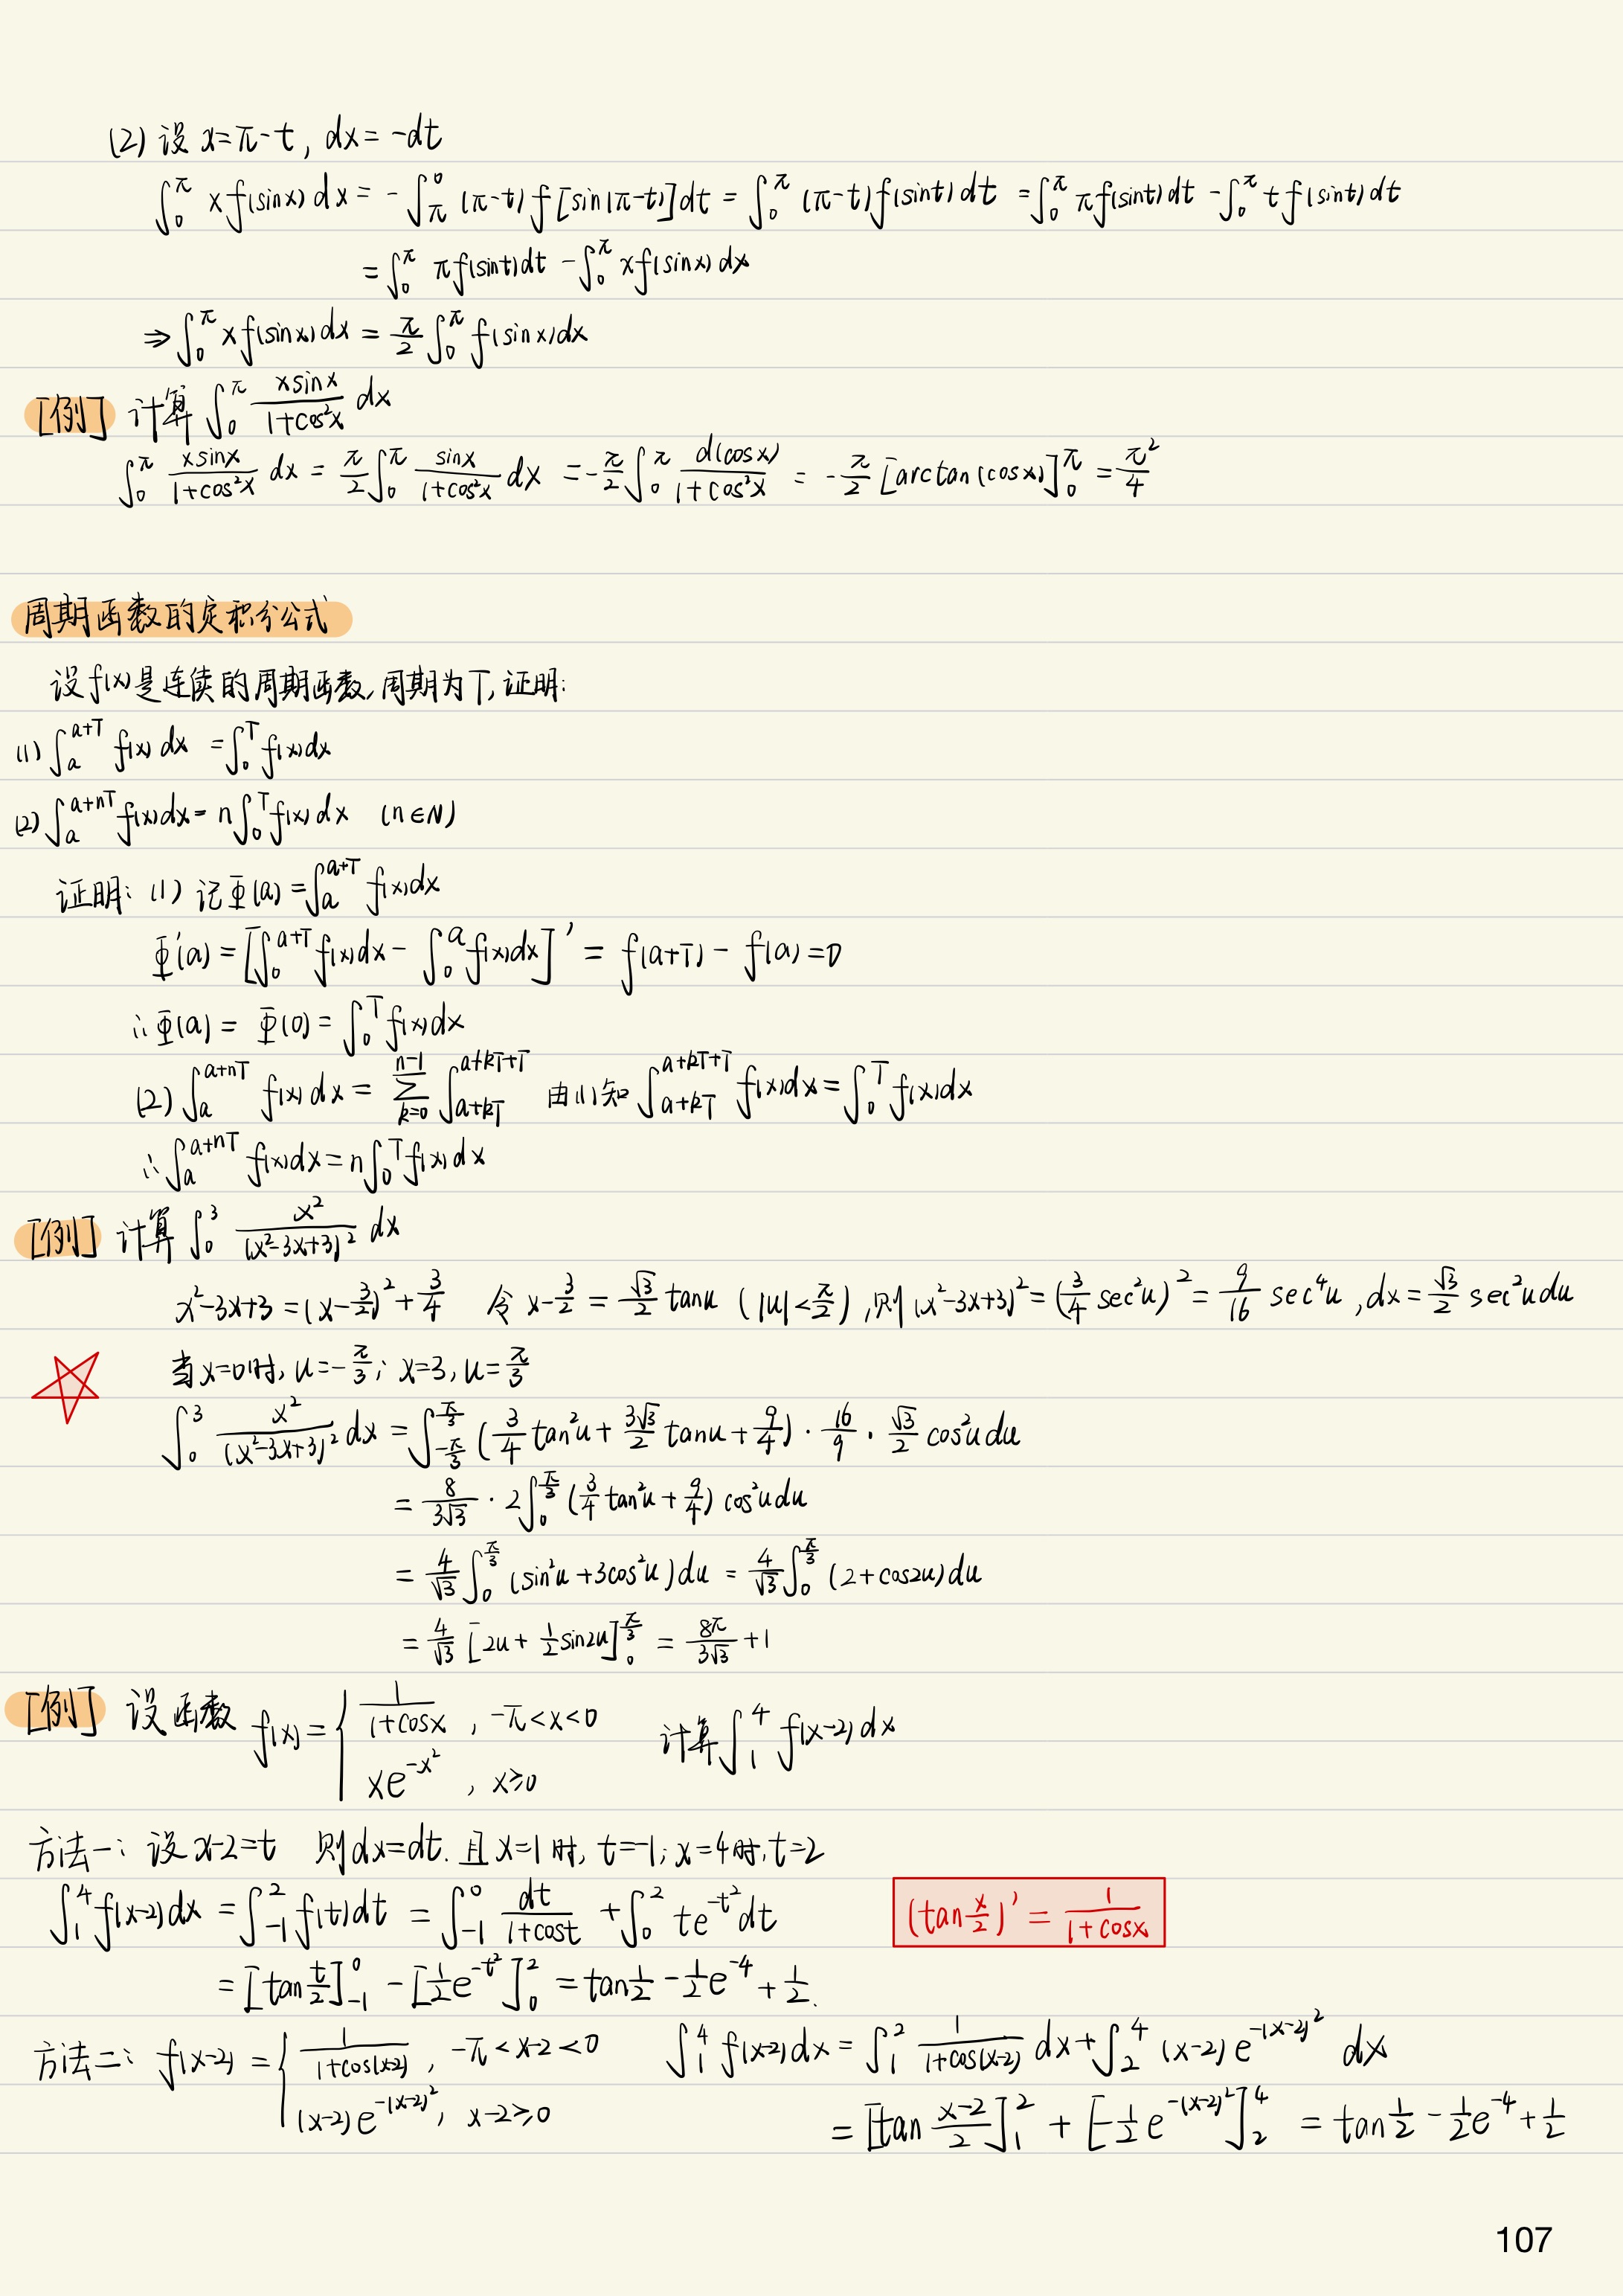 (2) 设 x=π-t, dx=-dt
∫₀^π x f(sinx) dx = -∫_π^0 (π-t) f[sin(π-t)]dt = ∫₀^π (π-t)f(sint) dt = ∫₀^π πf(sint) dt - ∫₀^π t f(sint) dt
= ∫₀^π πf(sint)dt - ∫₀^π xf(sinx) dx
⇒ ∫₀^π x f(sinx) dx = π/2 ∫₀^π f(sinx)dx
[例] 计算 ∫₀^π xsinx/(1+cos²x) dx
∫₀^π xsinx/(1+cos²x) dx = π/2 ∫₀^π sinx/(1+cos²x) dx = -π/2 ∫₀^π d(cosx)/(1+cos²x) = -π/2 [arctan(cosx)]₀^π = π²/4
周期函数的定积分公式
设f(x)是连续的周期函数,周期为T,证明:
(1) ∫_a^{a+T} f(x) dx = ∫₀^T f(x)dx
(2) ∫_a^{a+nT} f(x)dx = n∫₀^T f(x) dx (n∈N)
证明: (1) 记Φ(a) = ∫_a^{a+T} f(x)dx
Φ'(a) = [∫₀^{a+T} f(x)dx - ∫₀^a f(x)dx]' = f(a+T) - f(a) = 0
∴Φ(a) = Φ(0) = ∫₀^T f(x)dx
(2) ∫_a^{a+nT} f(x) dx = ∑_{k=0}^{n-1} ∫_{a+kT}^{a+kT+T} 由(1)知 ∫_{a+kT}^{a+kT+T} f(x)dx = ∫₀^T f(x)dx
∴ ∫_a^{a+nT} f(x)dx = n∫₀^T f(x)dx
[例] 计算 ∫₀³ x²/(x²-3x+3)² dx
x²-3x+3 = (x-3/2)² + 3/4 令 x-3/2 = √3/2 tanu (|u|<π/2), 则(x²-3x+3)² = (3/4 sec²u)² = 9/16 sec⁴u, dx = √3/2 sec²u du
当x=0时, u=-π/3; x=3, u=π/3
∫₀³ x²/(x²-3x+3)² dx = ∫_{-π/3}^{π/3} (3/4 tan²u + 3√3/2 tanu + 9/4) · 16/9 · √3/2 cos²u du
= 8/(3√3) · 2∫₀^{π/3} (3/4 tan²u + 9/4) cos²u du
= 4/√3 ∫₀^{π/3} (sin²u + 3cos²u) du = 4/√3 ∫₀^{π/3} (2+cos2u) du
= 4/√3 [2u + 1/2 sin2u]₀^{π/3} = 8π/(3√3) + 1
[例] 设函数 f(x) = { 1/(1+cosx), -π<x<0 计算 ∫₁⁴ f(x-2) dx
xe^{-x²}, x≥0
方法一: 设 x-2=t 则dx=dt. 且 x=1时, t=-1; x=4时, t=2
∫₁⁴ f(x-2)dx = ∫₋₁² f(t)dt = ∫₋₁⁰ dt/(1+cost) + ∫₀² te^{-t²}dt (tan x/2)' = 1/(1+cosx)
= [tan t/2]₋₁⁰ - [1/2 e^{-t²}]₀² = tan 1/2 - 1/2 e^{-4} + 1/2.
方法二: f(x-2) = { 1/(1+cos(x-2)), -π<x-2<0 ∫₁⁴ f(x-2)dx = ∫₁² 1/(1+cos(x-2)) dx + ∫₂⁴ (x-2) e^{-(x-2)²} dx
(x-2)e^{-(x-2)²}, x-2≥0 = [tan (x-2)/2]₁² + [-1/2 e^{-(x-2)²}]₂⁴ = tan 1/2 - 1/2 e^{-4} + 1/2
107